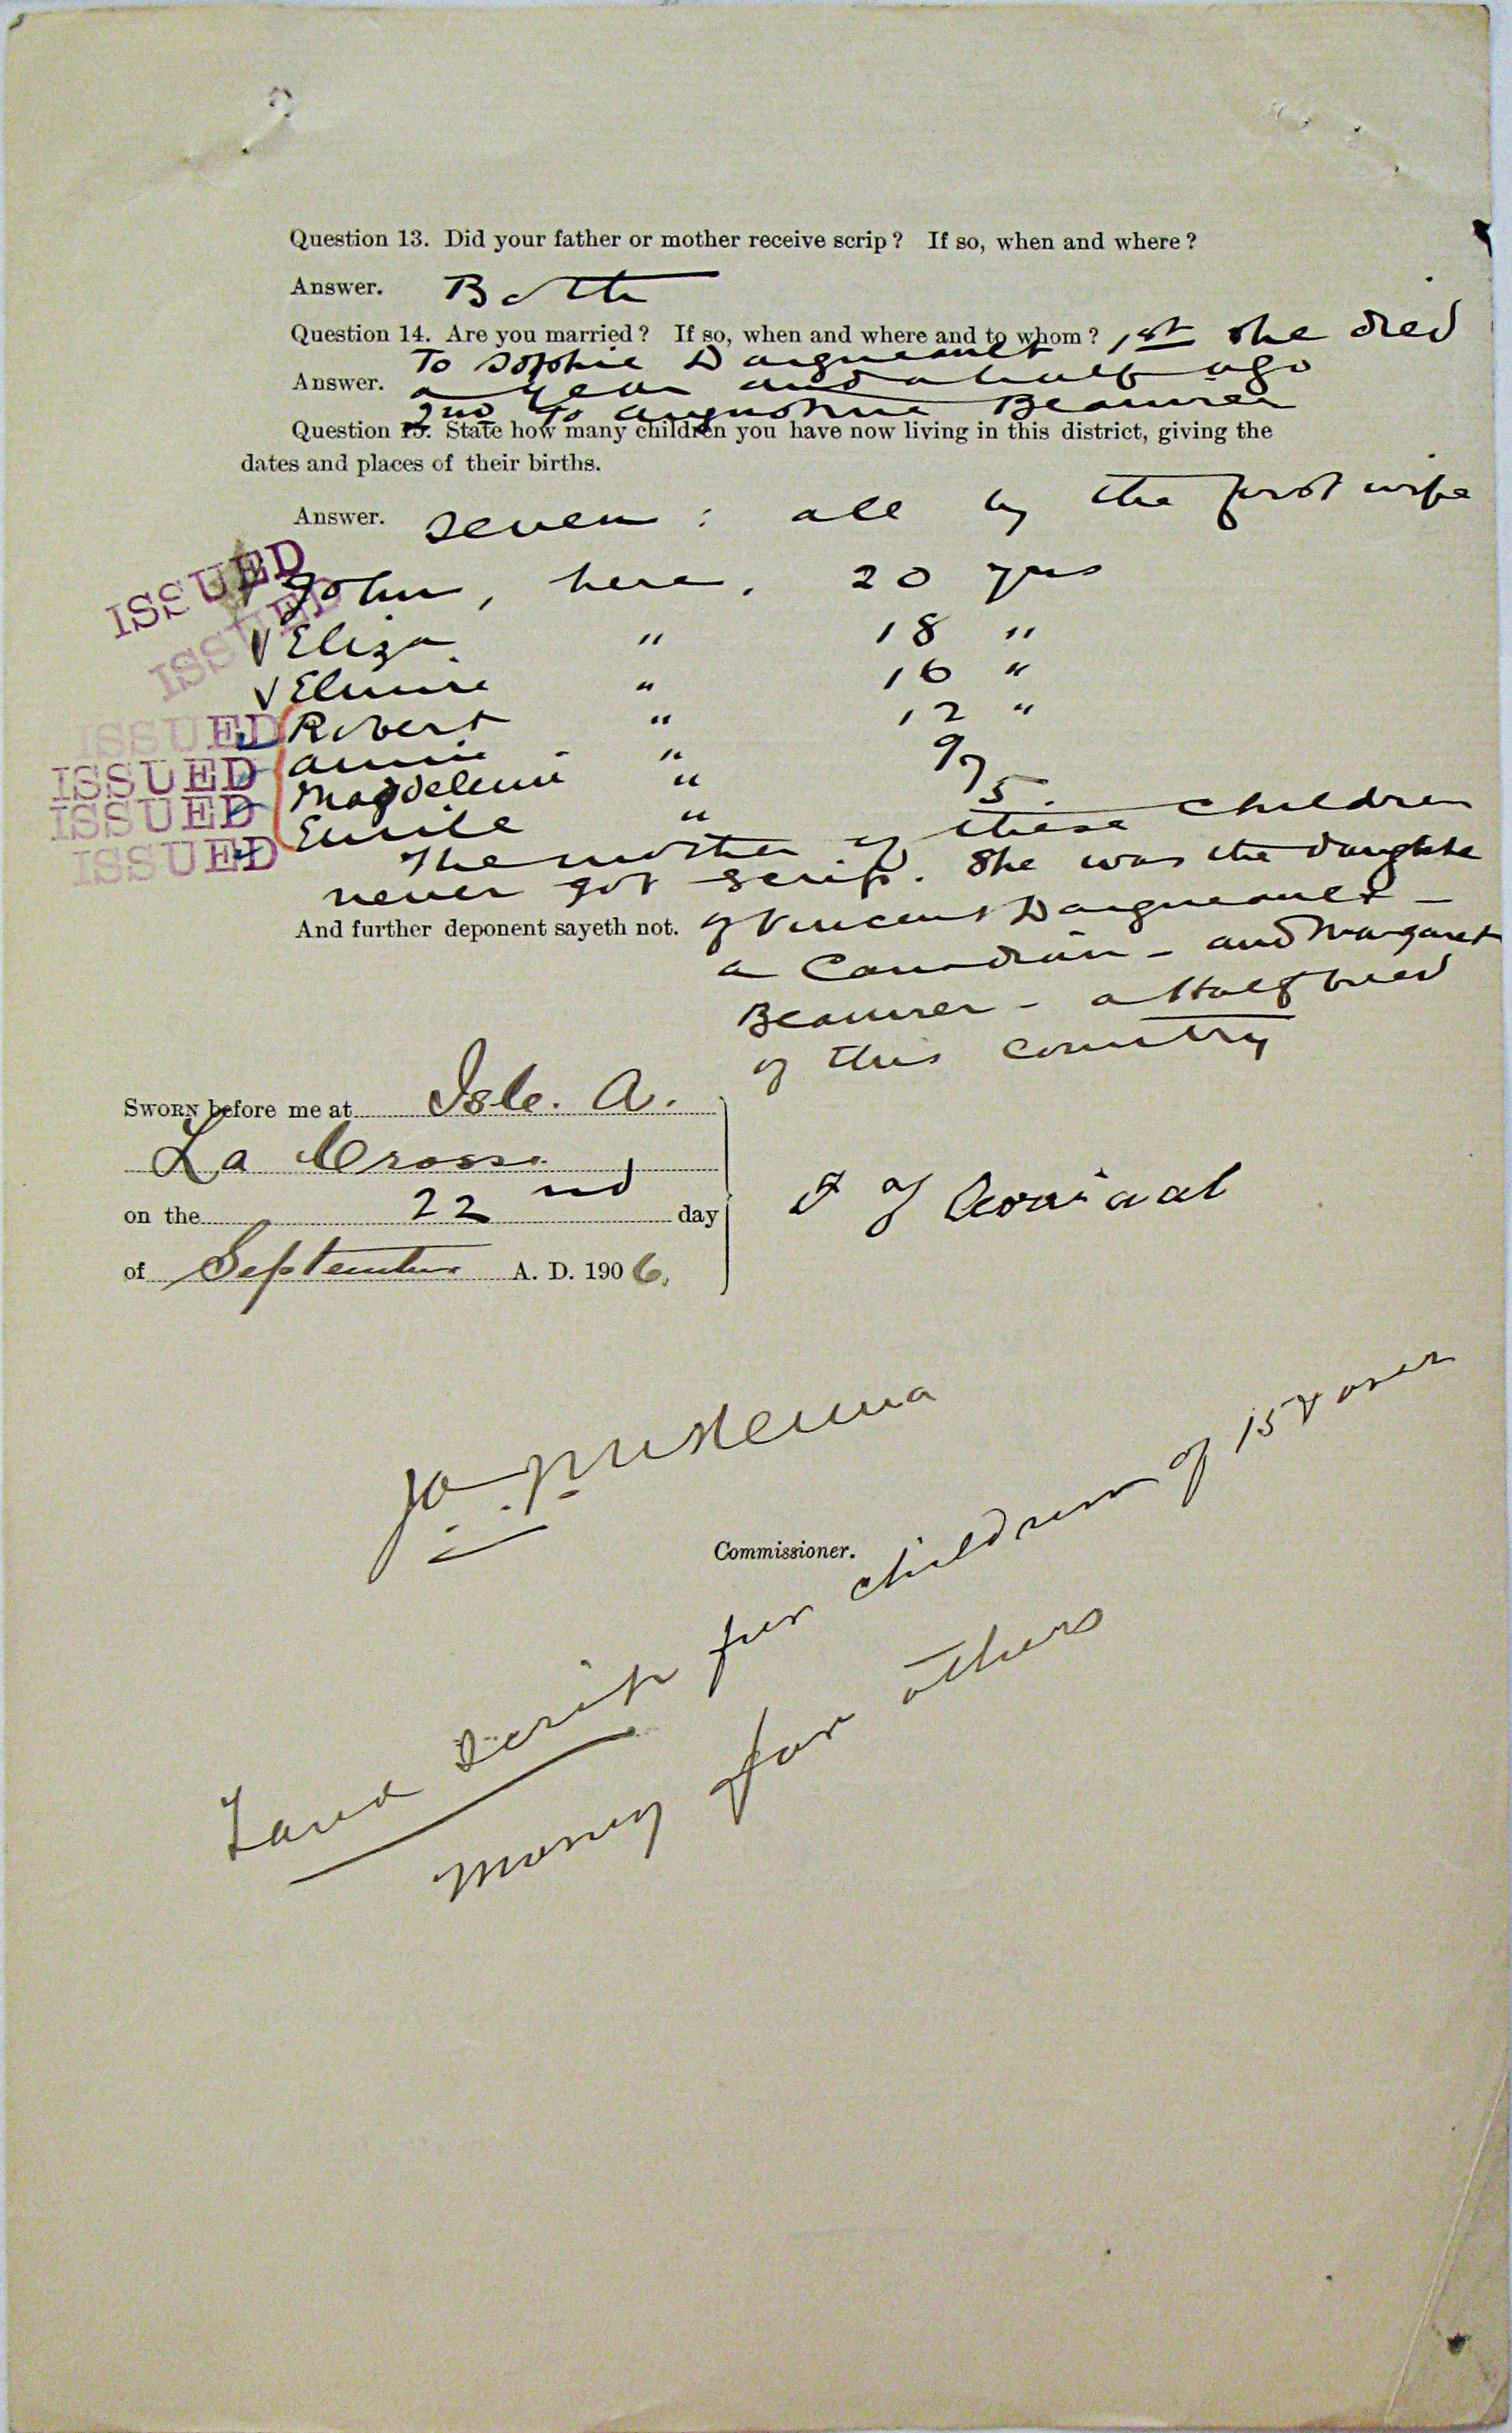 Question 13. Did your father or mother receive scrip? If so, when and where?
Answer. Both
Question 14. Are you married? If so, when and where and to whom? 1st she died
To Sophie Daigneault
Answer. a year and a half ago
2nd to Augustine
Question 15. State how many children you have now living in this district, giving the
dates and places of their births.
Answer. seven : all by the first wife
ISSUED John, here, 20 yrs
ISSUED √ Eliza " 18 "
√ " 16 "
ISSUED Robert " 12 "
ISSUED Annie " 9
ISSUED " 7
ISSUED " 5.
The mother of these children
never got scrip. She was the daughter
And further deponent sayeth not. of Vincent Daigneault -
a Canadian - and Margaret
- a Halfbreed
of this country
SWORN before me at Isle. A.
La Crosse
on the 22nd day
of September A. D. 1906.
Commissioner.
Land scrip for children of 15 & over
money for others